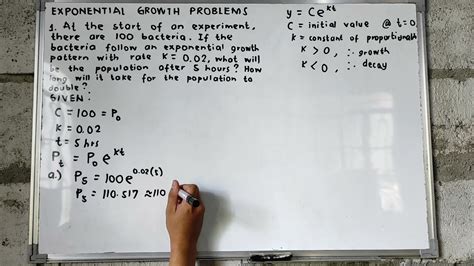 EXPONENTIAL GROWTH PROBLEMS
1. At the start of an experiment,
there are 100 bacteria. If the
bacteria follow an exponential growth
pattern with rate K = 0.02, what will
be the population after 5 hours? How
long will it take for the population to
double?
GIVEN:
C = 100 = P₀
K = 0.02
t = 5 hrs
P_t = P₀ e^{kt}
a) P₅ = 100e^{0.02(5)}
P₅ = 110.517 ≈ 110
y = Ce^{kt}
C = initial value @ t=0
K = constant of proportionali
K > 0, ∴ growth
K < 0, ∴ decay